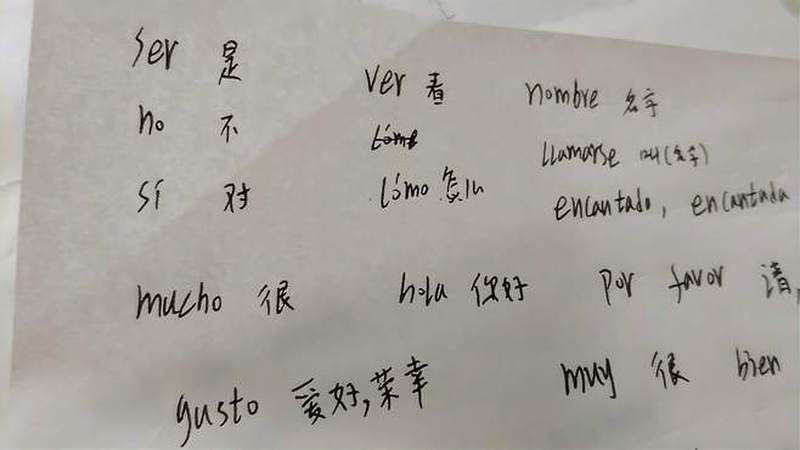 ser 是 ver 看 nombre 名字
no 不 llamarse 叫(名字)
sí 对 cómo 怎么 encantado, encantada
mucho 很 hola 你好 por favor 请,
gusto 爱好,荣幸 muy 很 bien